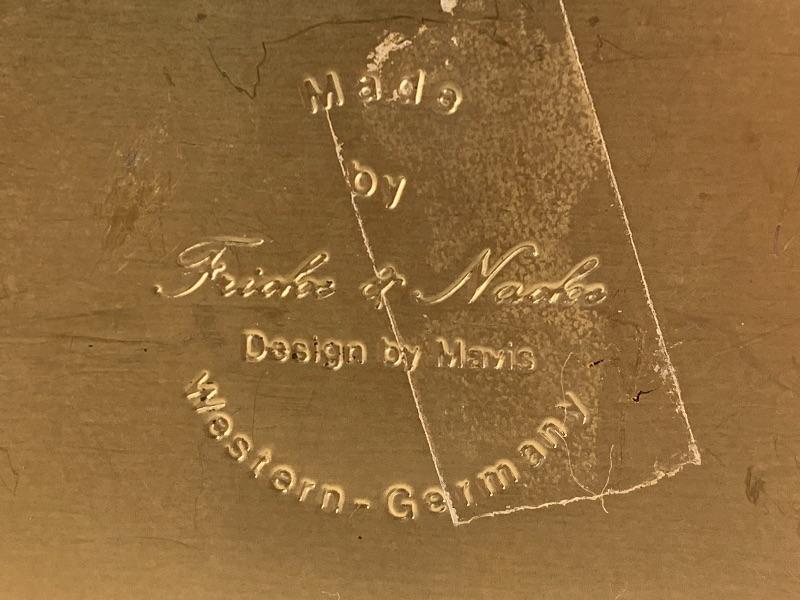 Made
by
Fricke & Nacke
Design by Mavis
Western-Germany